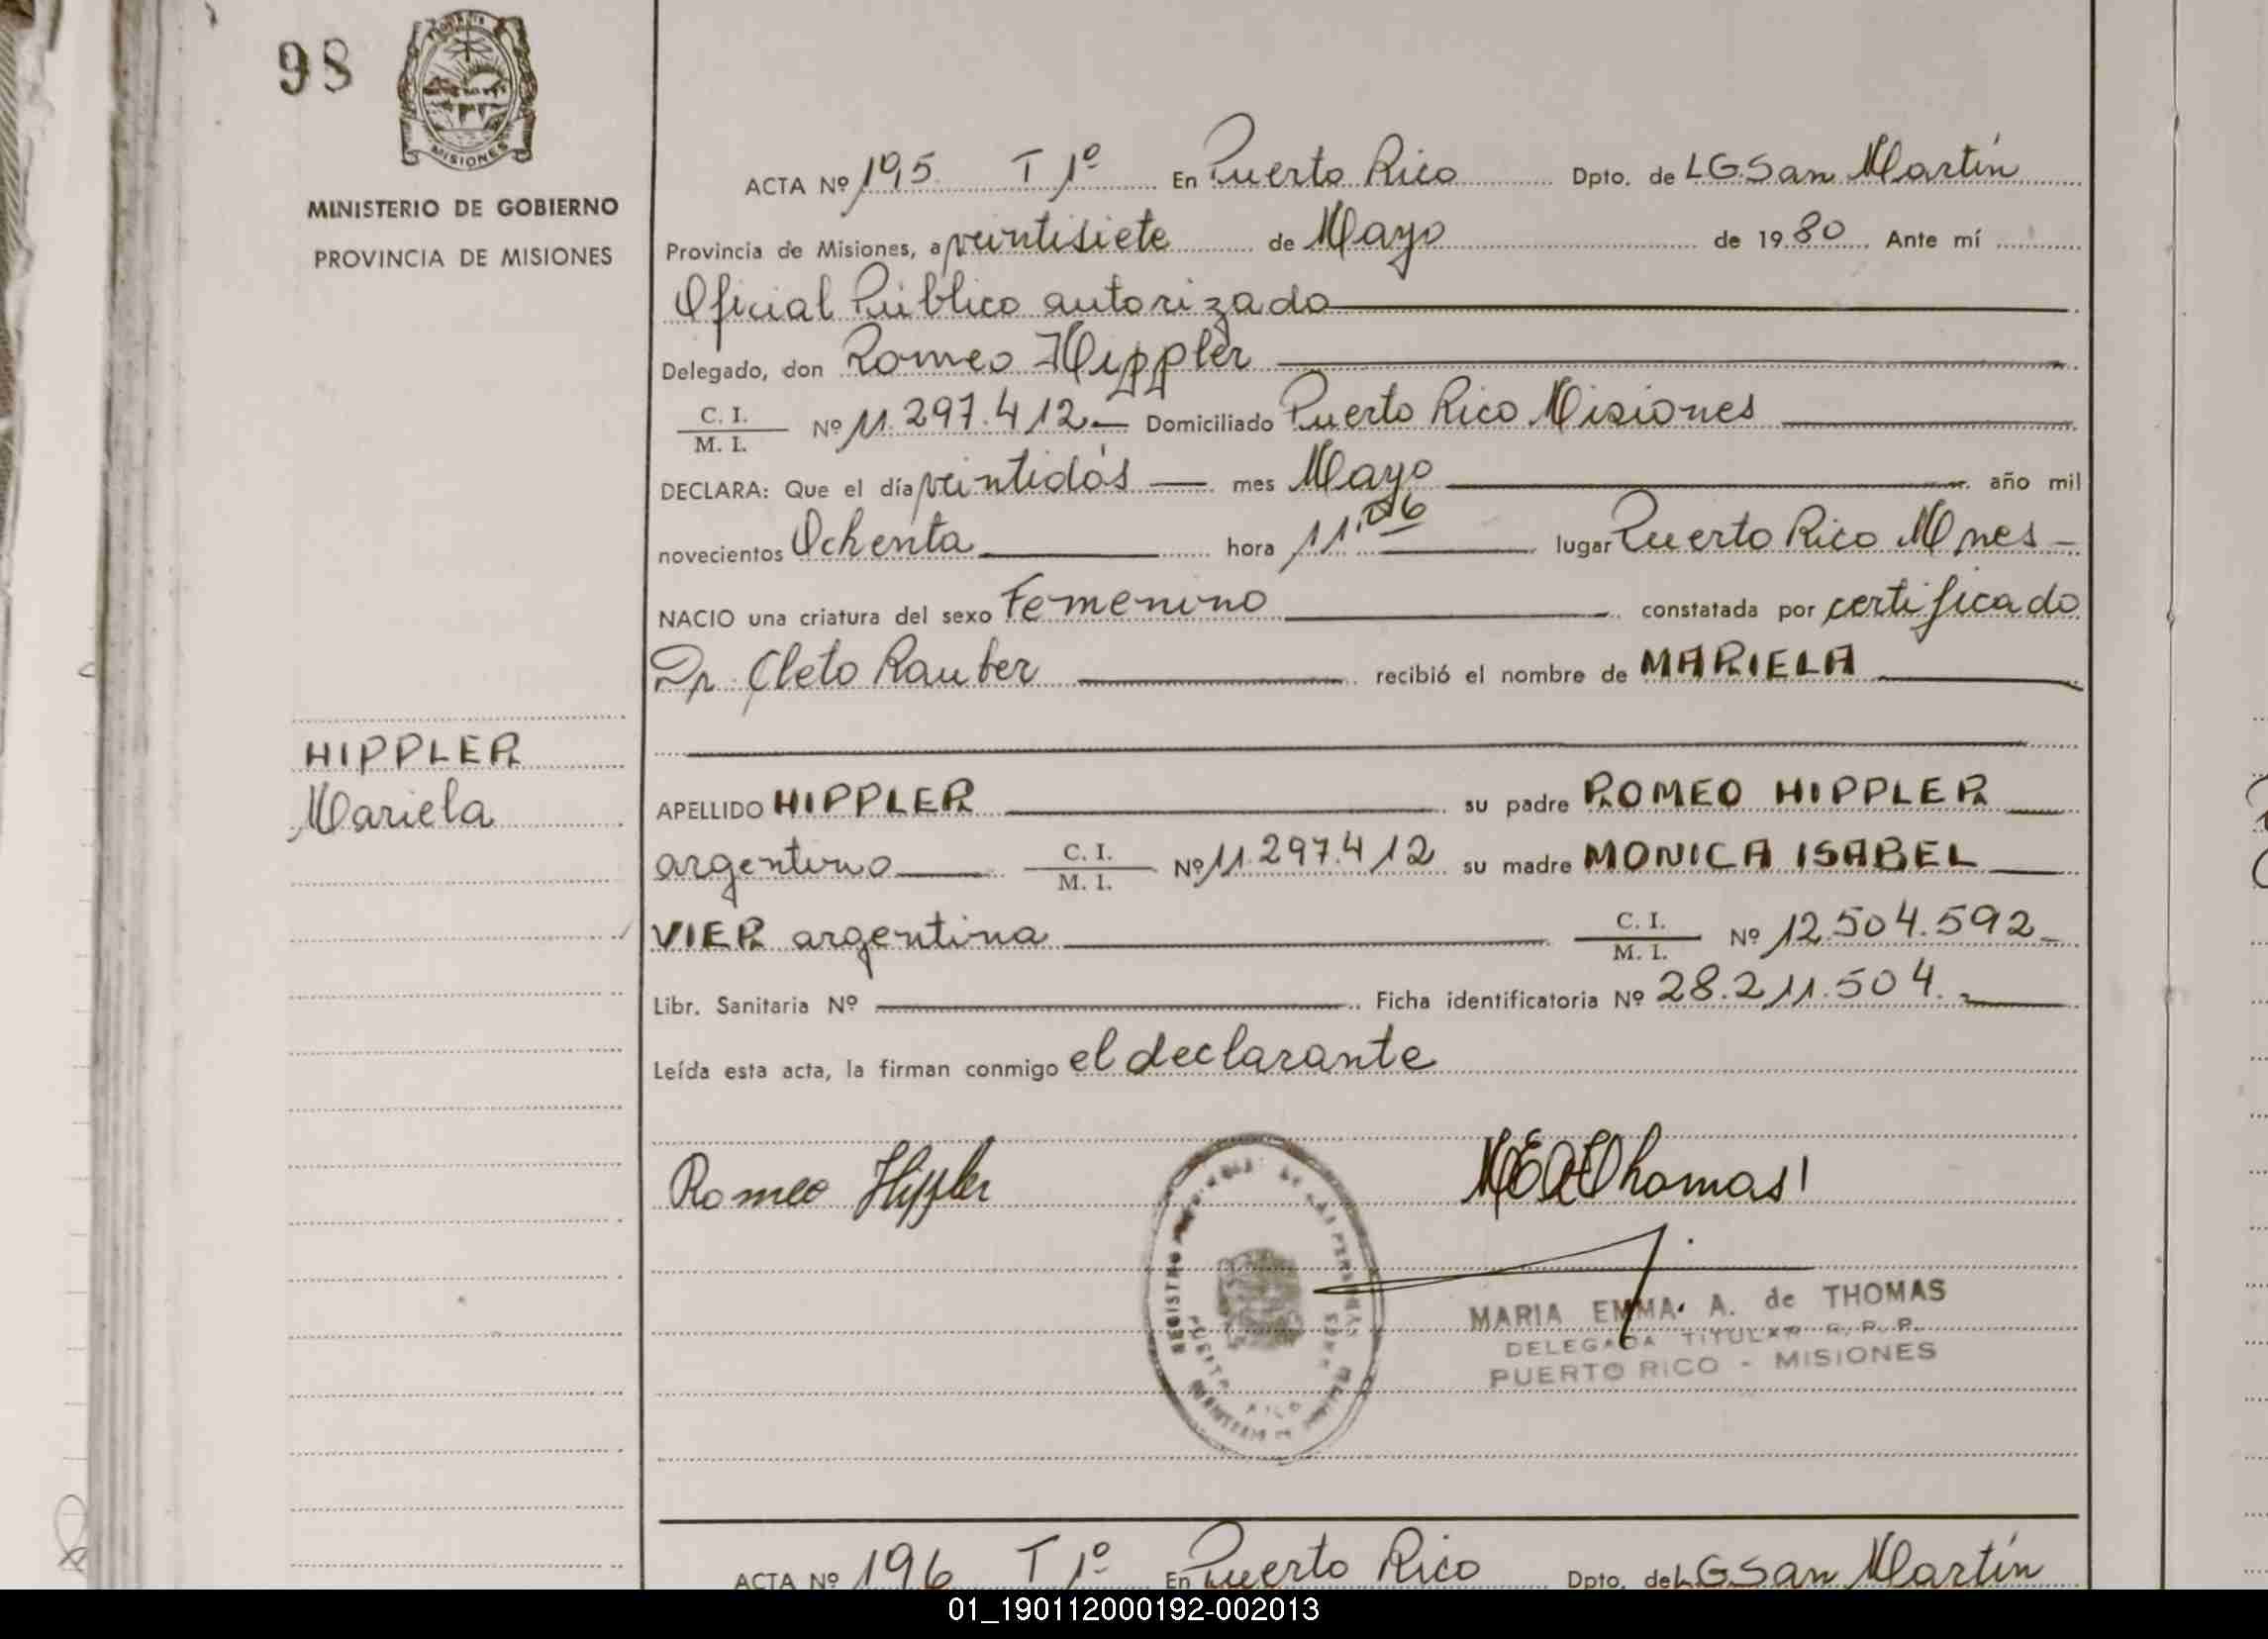 98
MISIONES
MINISTERIO DE GOBIERNO
PROVINCIA DE MISIONES
ACTA Nº 195 T 1º En Puerto Rico Dpto. de L G San Martín
Provincia de Misiones, a veintisiete de Mayo de 1980 Ante mí
Oficial Público autorizado
Delegado, don Romeo Hippler
C. I.
M. I. Nº 11.297.412 Domiciliado Puerto Rico Misiones
DECLARA: Que el día veintidós mes Mayo año mil
novecientos Ochenta hora 11,06 lugar Puerto Rico Mnes
NACIO una criatura del sexo Femenino constatada por certificado
Dr. Cleto Rauber recibió el nombre de MARIELA
HIPPLER
Mariela
APELLIDO HIPPLER su padre ROMEO HIPPLER
argentino C. I. M. I. Nº 11.297.412 su madre MONICA ISABEL
VIER argentina C. I. M. I. Nº 12.504.592
Libr. Sanitaria Nº Ficha identificatoria Nº 28.211.504.
Leída esta acta, la firman conmigo el declarante
Romeo Hippler
MEAThomas
REGISTRO DE LAS PERSONAS
PUERTO RICO
MARIA EMMA A. de THOMAS
DELEGADA TITULAR R. P. P.
PUERTO RICO - MISIONES
ACTA Nº 196 T 1º En Puerto Rico Dpto. de L G San Martín
01_190112000192-002013